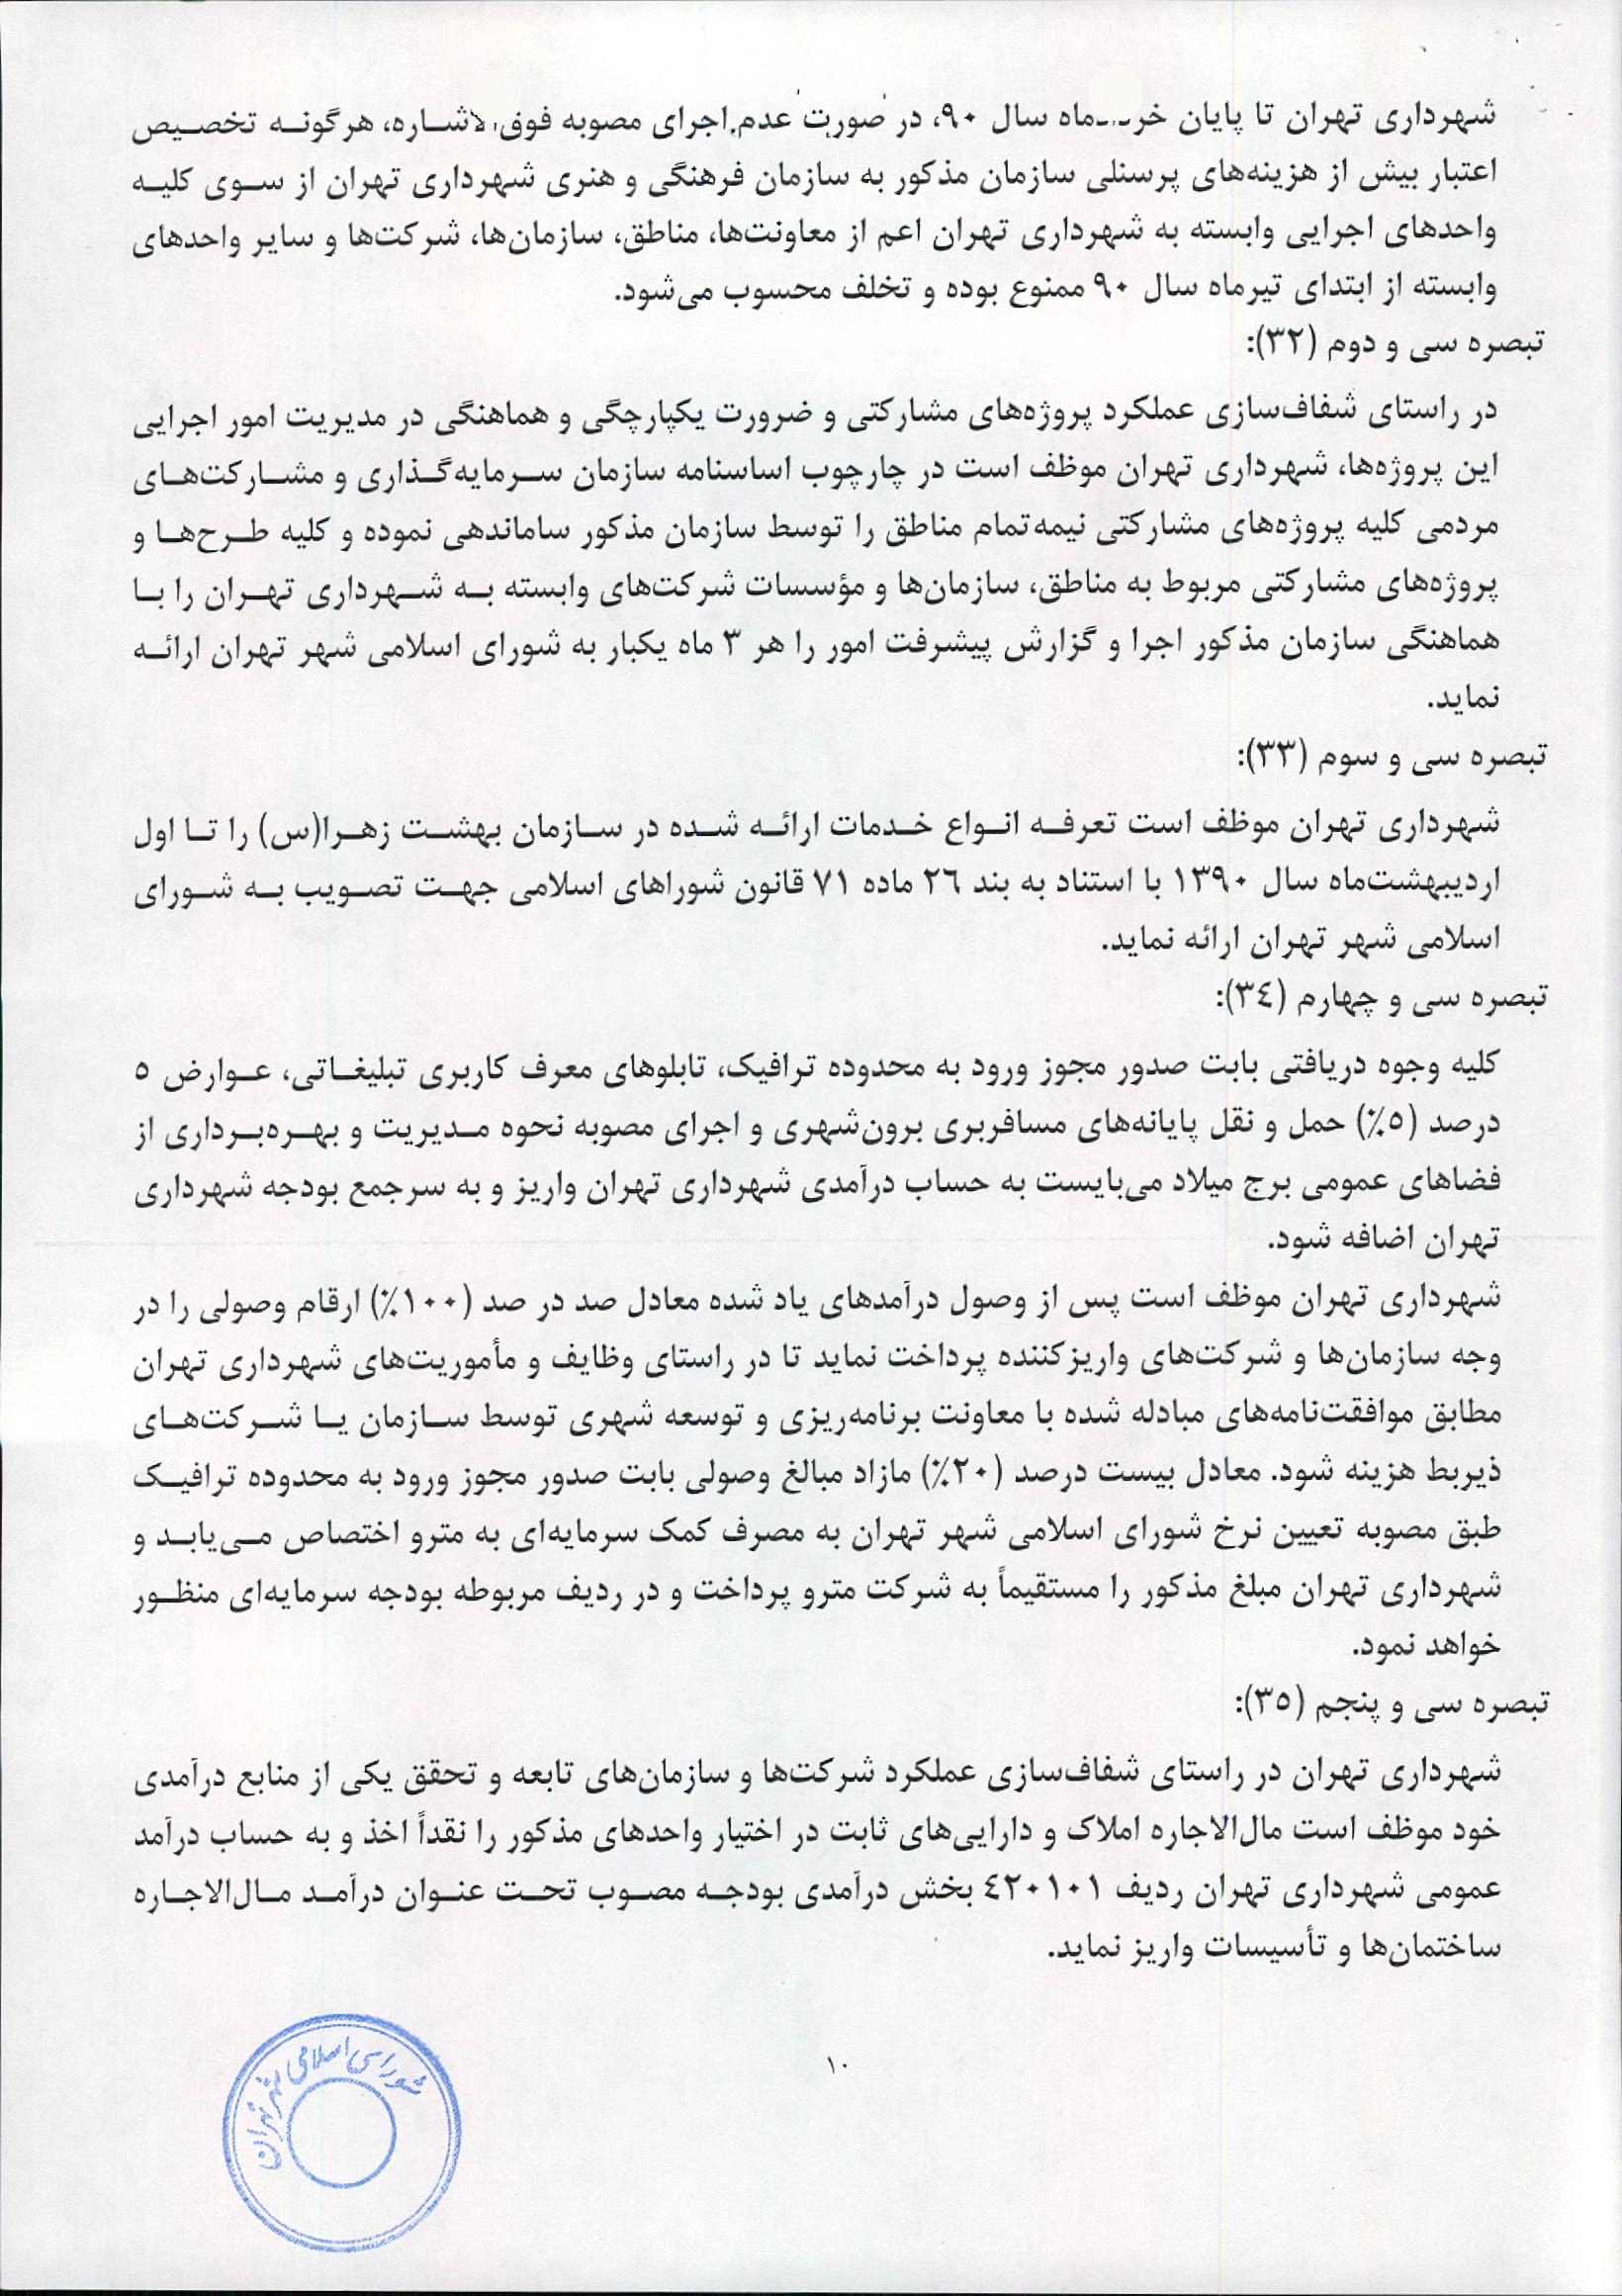 شهرداری تهران تا پایان خردادماه سال ۹۰، در صورت عدم اجرای مصوبه فوق‌الاشاره، هرگونه تخصیص
اعتبار بیش از هزینه‌های پرسنلی سازمان مذکور به سازمان فرهنگی و هنری شهرداری تهران از سوی کلیه
واحدهای اجرایی وابسته به شهرداری تهران اعم از معاونت‌ها، مناطق، سازمان‌ها، شرکت‌ها و سایر واحدهای
وابسته از ابتدای تیرماه سال ۹۰ ممنوع بوده و تخلف محسوب می‌شود.
تبصره سی و دوم (۳۲):
در راستای شفاف‌سازی عملکرد پروژه‌های مشارکتی و ضرورت یکپارچگی و هماهنگی در مدیریت امور اجرایی
این پروژه‌ها، شهرداری تهران موظف است در چارچوب اساسنامه سازمان سرمایه‌گذاری و مشارکت‌های
مردمی کلیه پروژه‌های مشارکتی نیمه‌تمام مناطق را توسط سازمان مذکور ساماندهی نموده و کلیه طرح‌ها و
پروژه‌های مشارکتی مربوط به مناطق، سازمان‌ها و مؤسسات شرکت‌های وابسته به شهرداری تهران را با
هماهنگی سازمان مذکور اجرا و گزارش پیشرفت امور را هر ۳ ماه یکبار به شورای اسلامی شهر تهران ارائه
نماید.
تبصره سی و سوم (۳۳):
شهرداری تهران موظف است تعرفه انواع خدمات ارائه شده در سازمان بهشت زهرا(س) را تا اول
اردیبهشت‌ماه سال ۱۳۹۰ با استناد به بند ۲۶ ماده ۷۱ قانون شوراهای اسلامی جهت تصویب به شورای
اسلامی شهر تهران ارائه نماید.
تبصره سی و چهارم (۳۴):
کلیه وجوه دریافتی بابت صدور مجوز ورود به محدوده ترافیک، تابلوهای معرف کاربری تبلیغاتی، عوارض ۵
درصد (۵٪) حمل و نقل پایانه‌های مسافربری برون‌شهری و اجرای مصوبه نحوه مدیریت و بهره‌برداری از
فضاهای عمومی برج میلاد می‌بایست به حساب درآمدی شهرداری تهران واریز و به سرجمع بودجه شهرداری
تهران اضافه شود.
شهرداری تهران موظف است پس از وصول درآمدهای یاد شده معادل صد در صد (۱۰۰٪) ارقام وصولی را در
وجه سازمان‌ها و شرکت‌های واریزکننده پرداخت نماید تا در راستای وظایف و مأموریت‌های شهرداری تهران
مطابق موافقت‌نامه‌های مبادله شده با معاونت برنامه‌ریزی و توسعه شهری توسط سازمان یا شرکت‌های
ذیربط هزینه شود. معادل بیست درصد (۲۰٪) مازاد مبالغ وصولی بابت صدور مجوز ورود به محدوده ترافیک
طبق مصوبه تعیین نرخ شورای اسلامی شهر تهران به مصرف کمک سرمایه‌ای به مترو اختصاص می‌یابد و
شهرداری تهران مبلغ مذکور را مستقیماً به شرکت مترو پرداخت و در ردیف مربوطه بودجه سرمایه‌ای منظور
خواهد نمود.
تبصره سی و پنجم (۳۵):
شهرداری تهران در راستای شفاف‌سازی عملکرد شرکت‌ها و سازمان‌های تابعه و تحقق یکی از منابع درآمدی
خود موظف است مال‌الاجاره املاک و دارایی‌های ثابت در اختیار واحدهای مذکور را نقداً اخذ و به حساب درآمد
عمومی شهرداری تهران ردیف ۴۲۰۱۰۱ بخش درآمدی بودجه مصوب تحت عنوان درآمد مال‌الاجاره
ساختمان‌ها و تأسیسات واریز نماید.
۱۰
شورای اسلامی شهر تهران